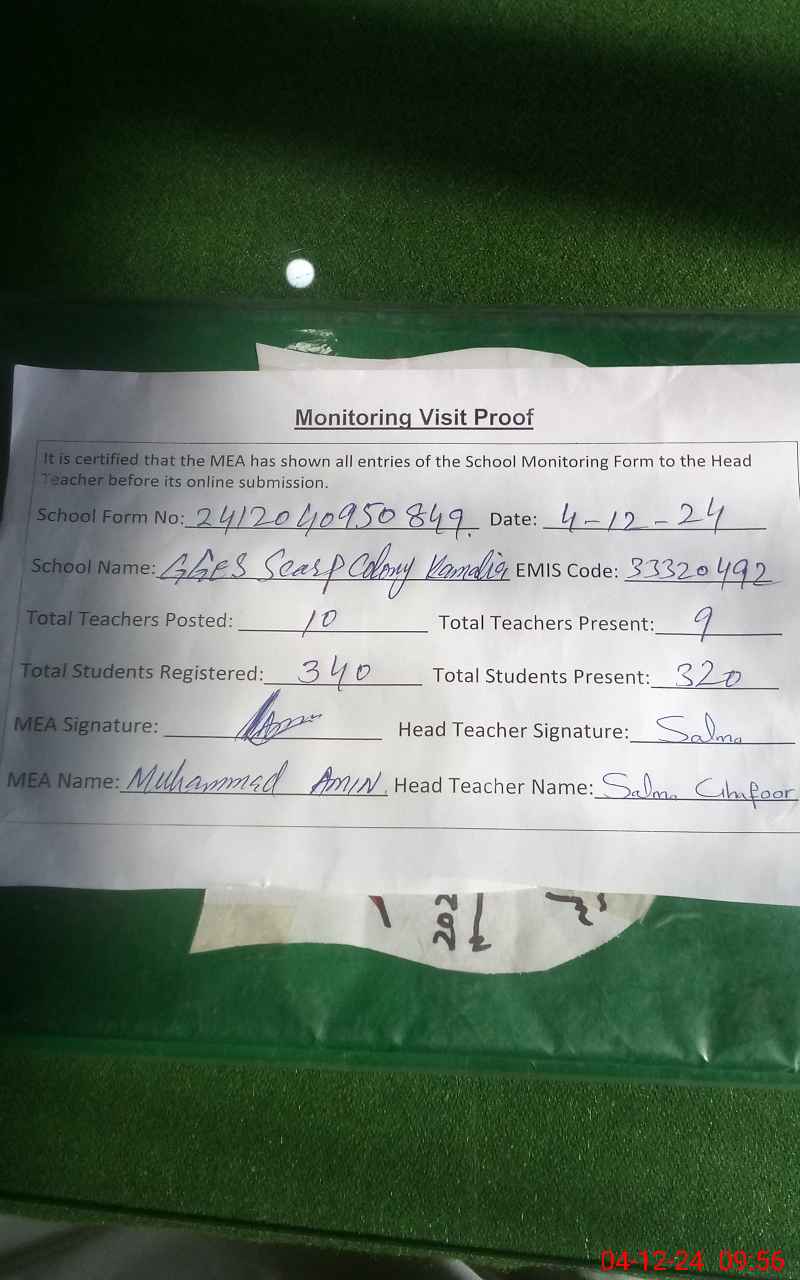 Monitoring Visit Proof
It is certified that the MEA has shown all entries of the School Monitoring Form to the Head
Teacher before its online submission.
School Form No: 2412040950849. Date: 4-12-24
School Name: GGES Scarp Colony Kamalia EMIS Code: 33320492
Total Teachers Posted: 10 Total Teachers Present: 9
Total Students Registered: 340 Total Students Present: 320
MEA Signature: Amin Head Teacher Signature: Salma
MEA Name: Muhammad AMIN. Head Teacher Name: Salma Ghafoor
202
04-12-24 09:56